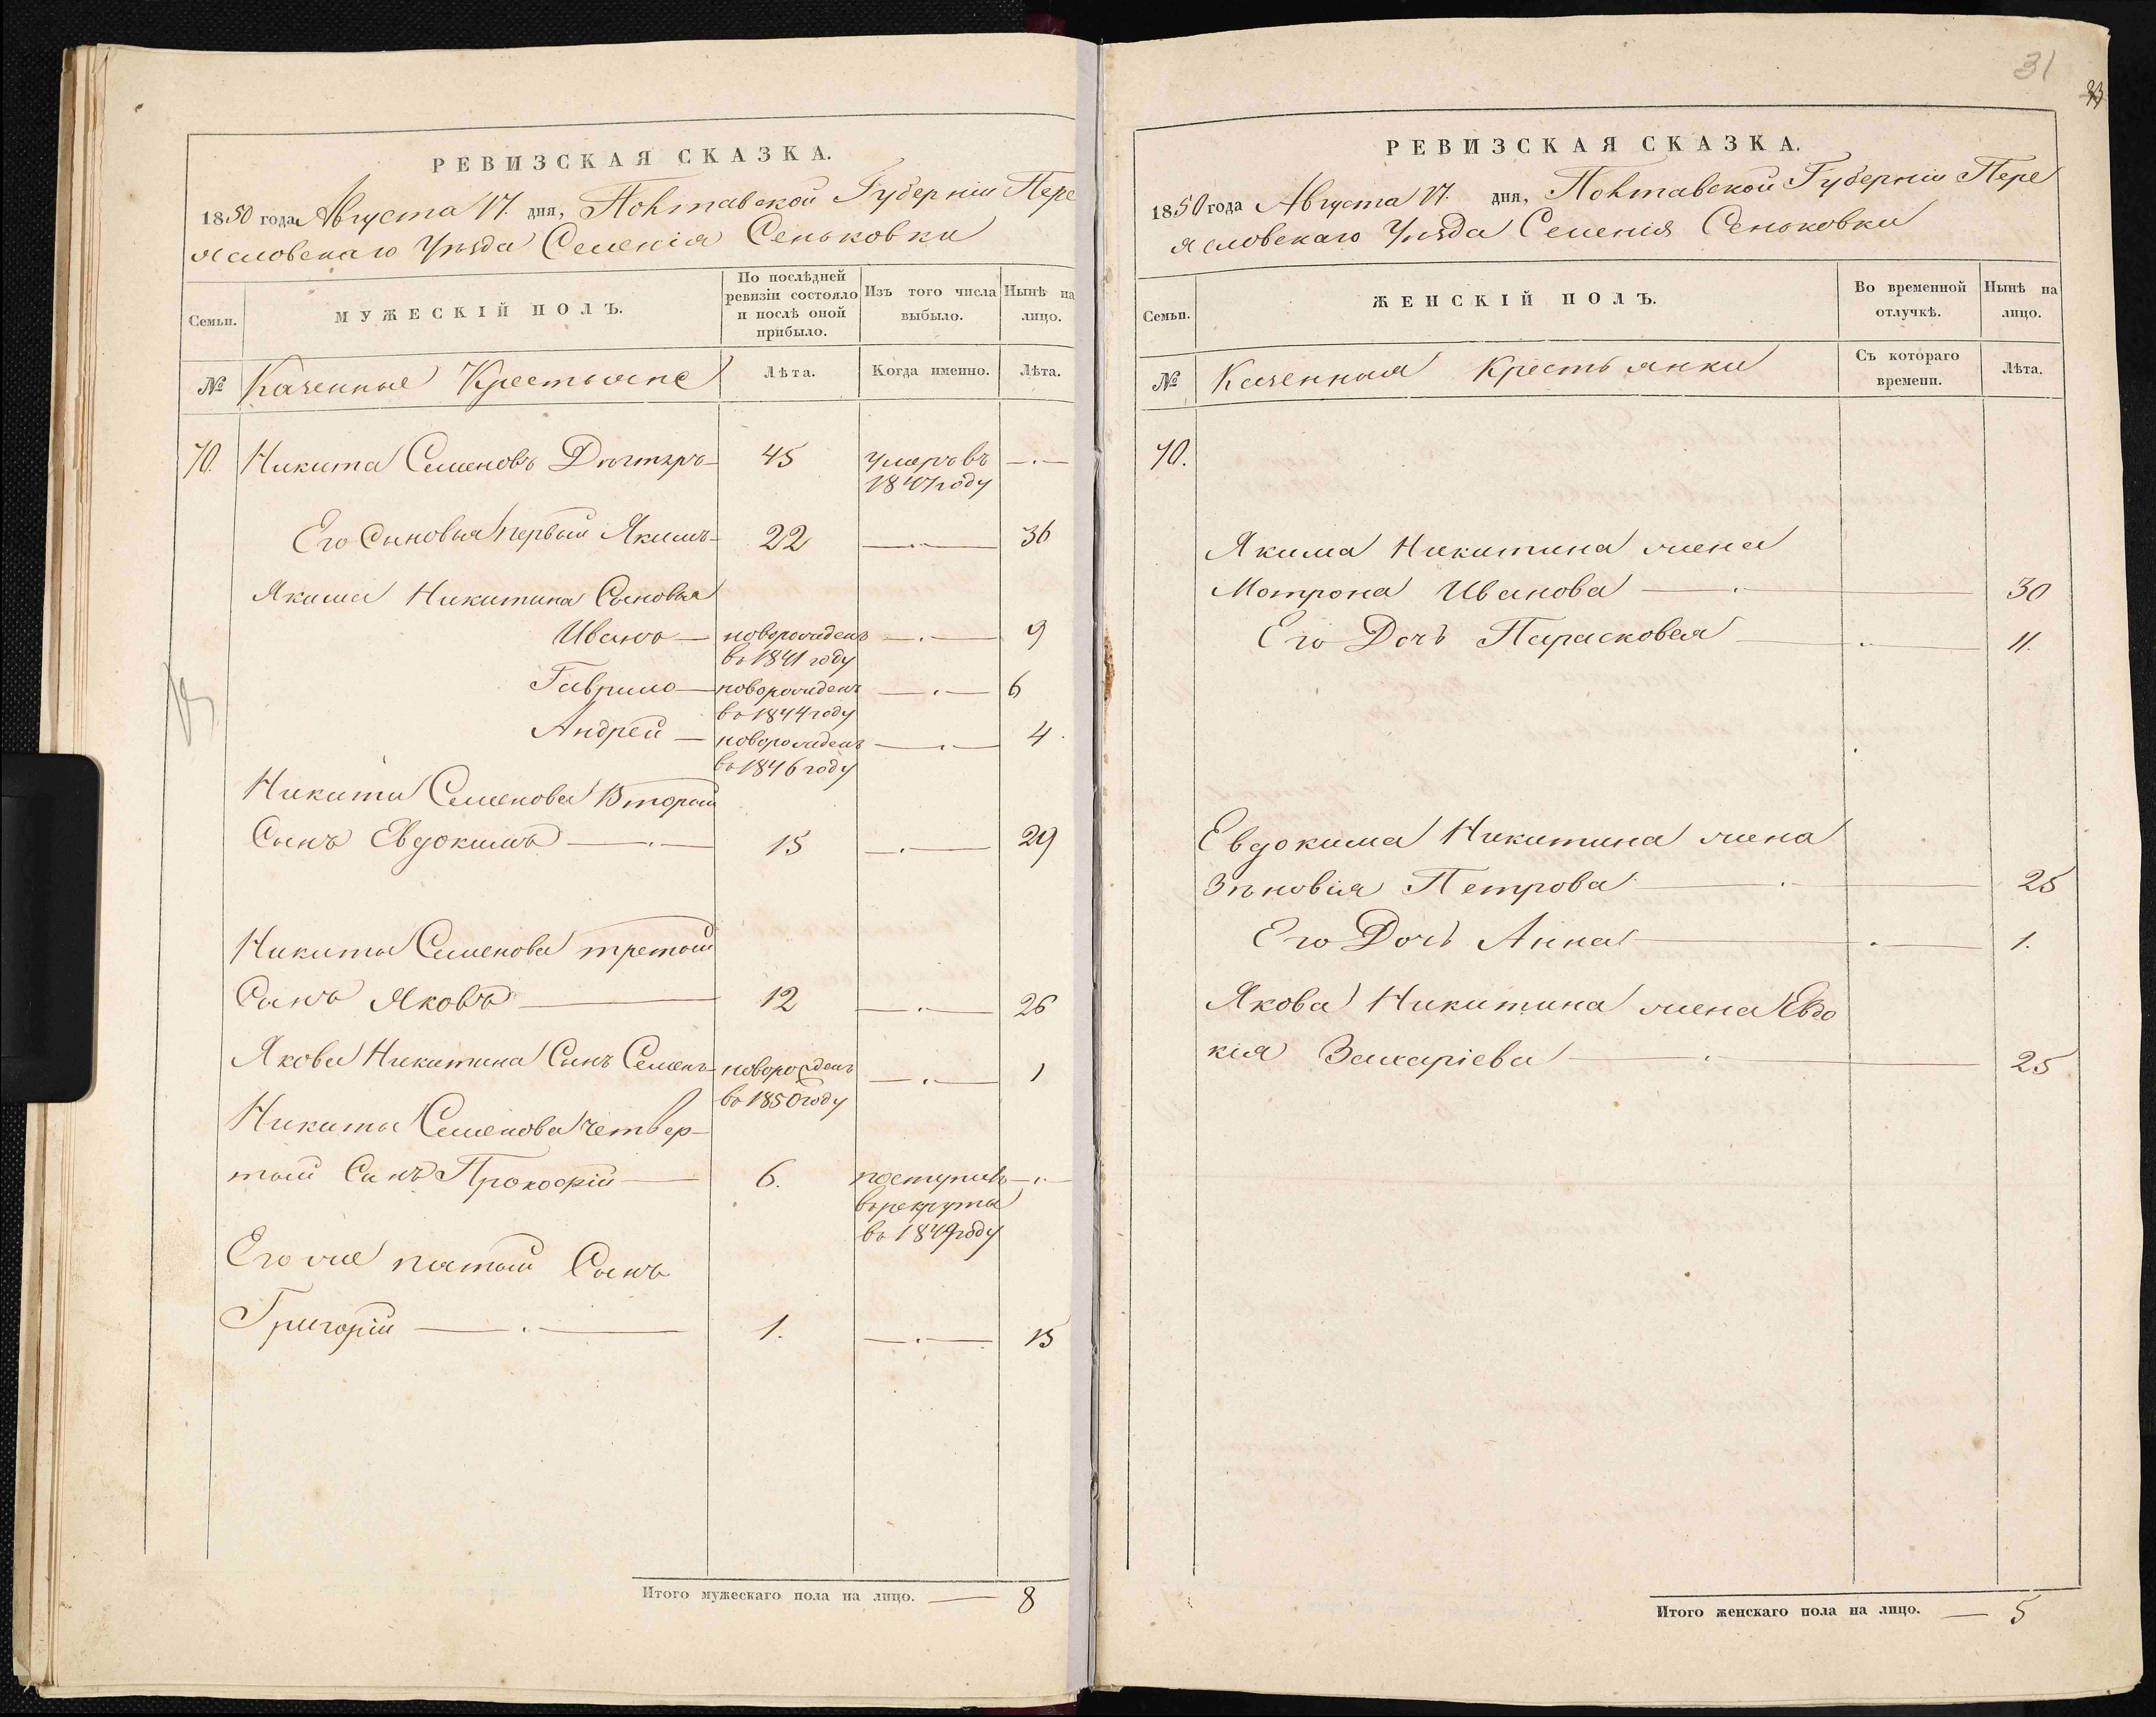 РЕВИЗСКАЯ СКАЗКА.
1850 года Августа 17. дня, Полтавской Губернiи Пере
яславскаго Уѣзда Селенiя Сеньковки
Семьи.
МУЖЕСКIЙ ПОЛЪ.
По послѣдней
ревизiи состояло
и послѣ оной
прибыло.
Изъ того числа
выбыло.
Нынѣ на
лицо.
№ Казенные Крестьяне
Лѣта. Когда именно. Лѣта.
70. Никита Семеновъ 45 умеръ въ
1847 году
Его Сыновья первый Якимъ 22 36
Якима Никитина Сыновья
Иванъ новорожденъ 9
въ 1841 году
Гаврило новорожденъ 6
въ 1844 году
Андрей новорожденъ 4
въ 1846 году
Никиты Семенова Второй
Сынъ Евдокимъ 15 29
Никиты Семенова третий
Сынъ Яковъ 12 26
Якова Никитина Сынъ Семенъ новорожденъ 1
въ 1850 году
Никиты Семенова Четвер
тый Сынъ Прокофiй 6. поступилъ
въ рекруты
въ 1849 году
Его же пятый Сынъ
Григорiй 1. 15
Итого мужескаго пола на лицо. 8
31
РЕВИЗСКАЯ СКАЗКА.
1850 года Августа 17. дня, Полтавской Губернiи Пере
яславскаго Уѣзда Селенiя Сеньковки
Семьи.
ЖЕНСКIЙ ПОЛЪ.
Во временной
отлучкѣ.
Нынѣ на
лицо.
№ Казенныя Крестьянки
Съ котораго
времени.
Лѣта.
70.
Якима Никитина жена
Мотрона Иванова 30
Его Дочь Парасковея 11.
Евдокима Никитина жена
Зѣновiя Петрова 25
Его Дочь Анна 1.
Якова Никитина жена Евдо
кiя Захарiева 25
Итого женскаго пола на лицо. 5